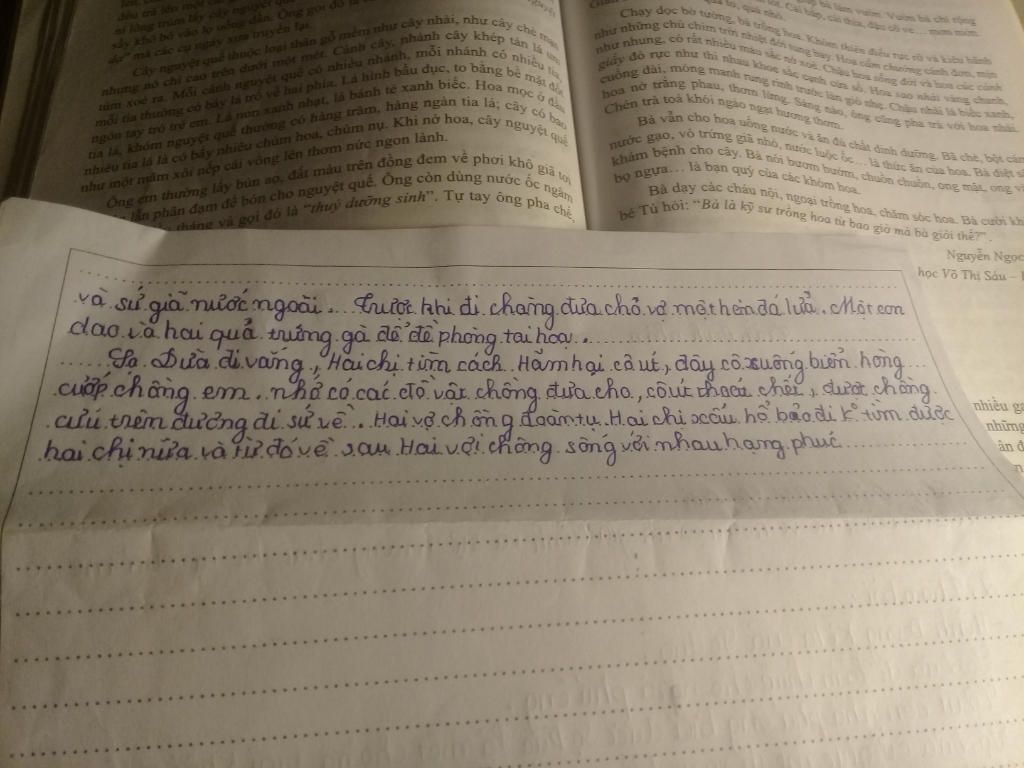 ni lông trùm lấy cây nguyệt quế
sấy khô bỏ vào lọ uống dần. Ông gọi đó là
dự" mà các cụ ngày xưa truyền lại.
Cây nguyệt quế thuộc loại thân gỗ mềm như cây nhài, như cây chè mạn
nhưng nó chỉ cao trên dưới một mét. Cành cây, nhánh cây khép tán lá um
túm xoè ra. Mỗi cành nguyệt quế có nhiều nhánh, mỗi nhánh có nhiều tia,
mỗi tia thường có bảy lá trổ về hai phía. Lá hình bầu dục, to bằng bề mặt đốt
ngón tay trỏ trẻ em. Lá non xanh nhạt, lá bánh tẻ xanh biếc. Hoa mọc ở đầu
tia lá, khóm nguyệt quế thường có hàng trăm, hàng ngàn tia lá; cây có bao
nhiêu tia lá là có bấy nhiêu chùm hoa, chùm nụ. Khi nở hoa, cây nguyệt quế
như một mâm xôi nếp cái vồng lên thơm nức ngon lành.
Ông em thường lấy bùn ao, đất màu trên đồng đem về phơi khô giã tơi
lẫn phân đạm để bón cho nguyệt quế. Ông còn dùng nước ốc ngâm
tháng và gọi đó là "thuỷ dưỡng sinh". Tự tay ông pha chế,
giúp bà làm vườn. Vườn bà chỉ rộng
lót. Cải bắp, cải thìa, đậu cô ve... mơn mởn
Chạy dọc bờ tường, bà trồng hoa. Khóm thiên điểu rực rỡ và kiêu hãnh
như những chú chim trời nhiệt đới tung bay. Hoa cẩm chướng cánh đơn, mịn
như nhung, có rất nhiều màu sắc nở xoè. Chậu hoa sống đời và hoa cúc cánh
giấy đỏ rực như thi nhau khoe sắc cạnh cửa sổ. Hoa sao nhái vàng chanh,
cuống dài, mỏng manh rung rinh trước làn gió nhẹ. Chậu nhài lá biếc xanh,
hoa nở trắng phau, thơm lừng. Sáng nào, ông cũng pha trà với hoa nhài.
Chén trà toả khói ngào ngạt hương thơm.
Bà vẫn cho hoa uống nước và ăn đủ chất dinh dưỡng. Bã chè, bột cám
nước gạo, vỏ trứng giã nhỏ, nước luộc ốc... là thức ăn của hoa. Bà diệt sâ
khám bệnh cho cây. Bà nói bươm bướm, chuồn chuồn, ong mật, ong v
bọ ngựa... là bạn quý của các khóm hoa.
Bà dạy các cháu nội, ngoại trồng hoa, chăm sóc hoa. Bà cười khi
bé Tú hỏi: "Bà là kỹ sư trồng hoa từ bao giờ mà bà giỏi thế?".
Nguyễn Ngọc
học Võ Thị Sáu –
và sứ giả nước ngoài... Trước khi đi chàng đưa chỏ vợ một hèn đá lửa. Một con
dao và hai quả trứng gà để đề phòng tai hoạ.
Sọ Dừa đi vắng, Hai chị tìm cách Hãm hại cô út, đây cô xuống biển hòng
cướp chồng em. nhờ có các đồ vật chồng đưa cho, cô út thoát chết, được chồng
cứu trên đường đi sứ về. Hai vợ chồng đoàn tụ. Hai chị xấu hổ bỏ đi k tìm được
hai chị nữa và từ đó về sau Hai vợi chồng sống với nhau hạng phuc
nhiều gạ
những
ăn đ